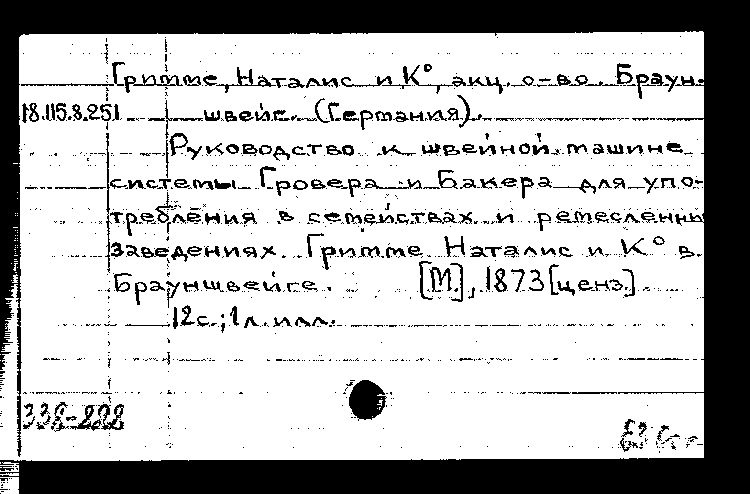 Гримме, Наталис и К°, акц. о-во. Браун-
18.115.8.251 швейг. (Германия).
Руководство к швейной машине
системы Гровера и Бакера для упо-
требления в семействах и ремесленны
заведениях Гримме Наталис и К° в.
Брауншвейге. [М.], 1873 [ценз.].
12 с.; 1 л. илл.
338-288